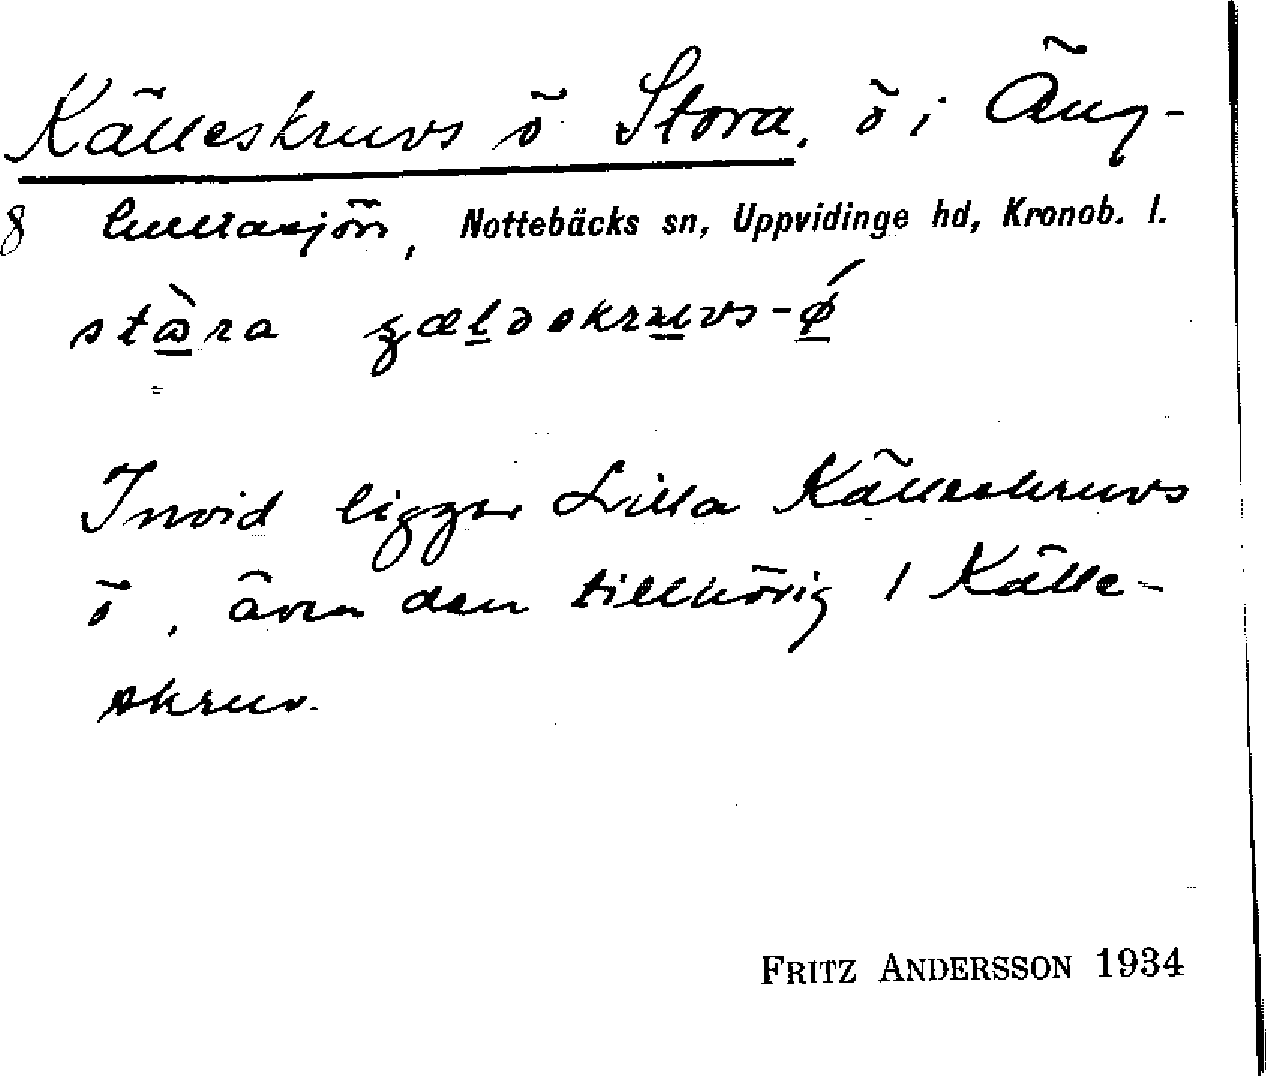 Källeskruvs ö Stora, ö i Äng-
8 hultasjön, Nottebäcks sn, Uppvidinge hd, Kronob. l.
Invid ligger Lilla Källeskruvs
ö, även den tillhörig / Källe-
skruv.
FRITZ ANDERSSON 1934